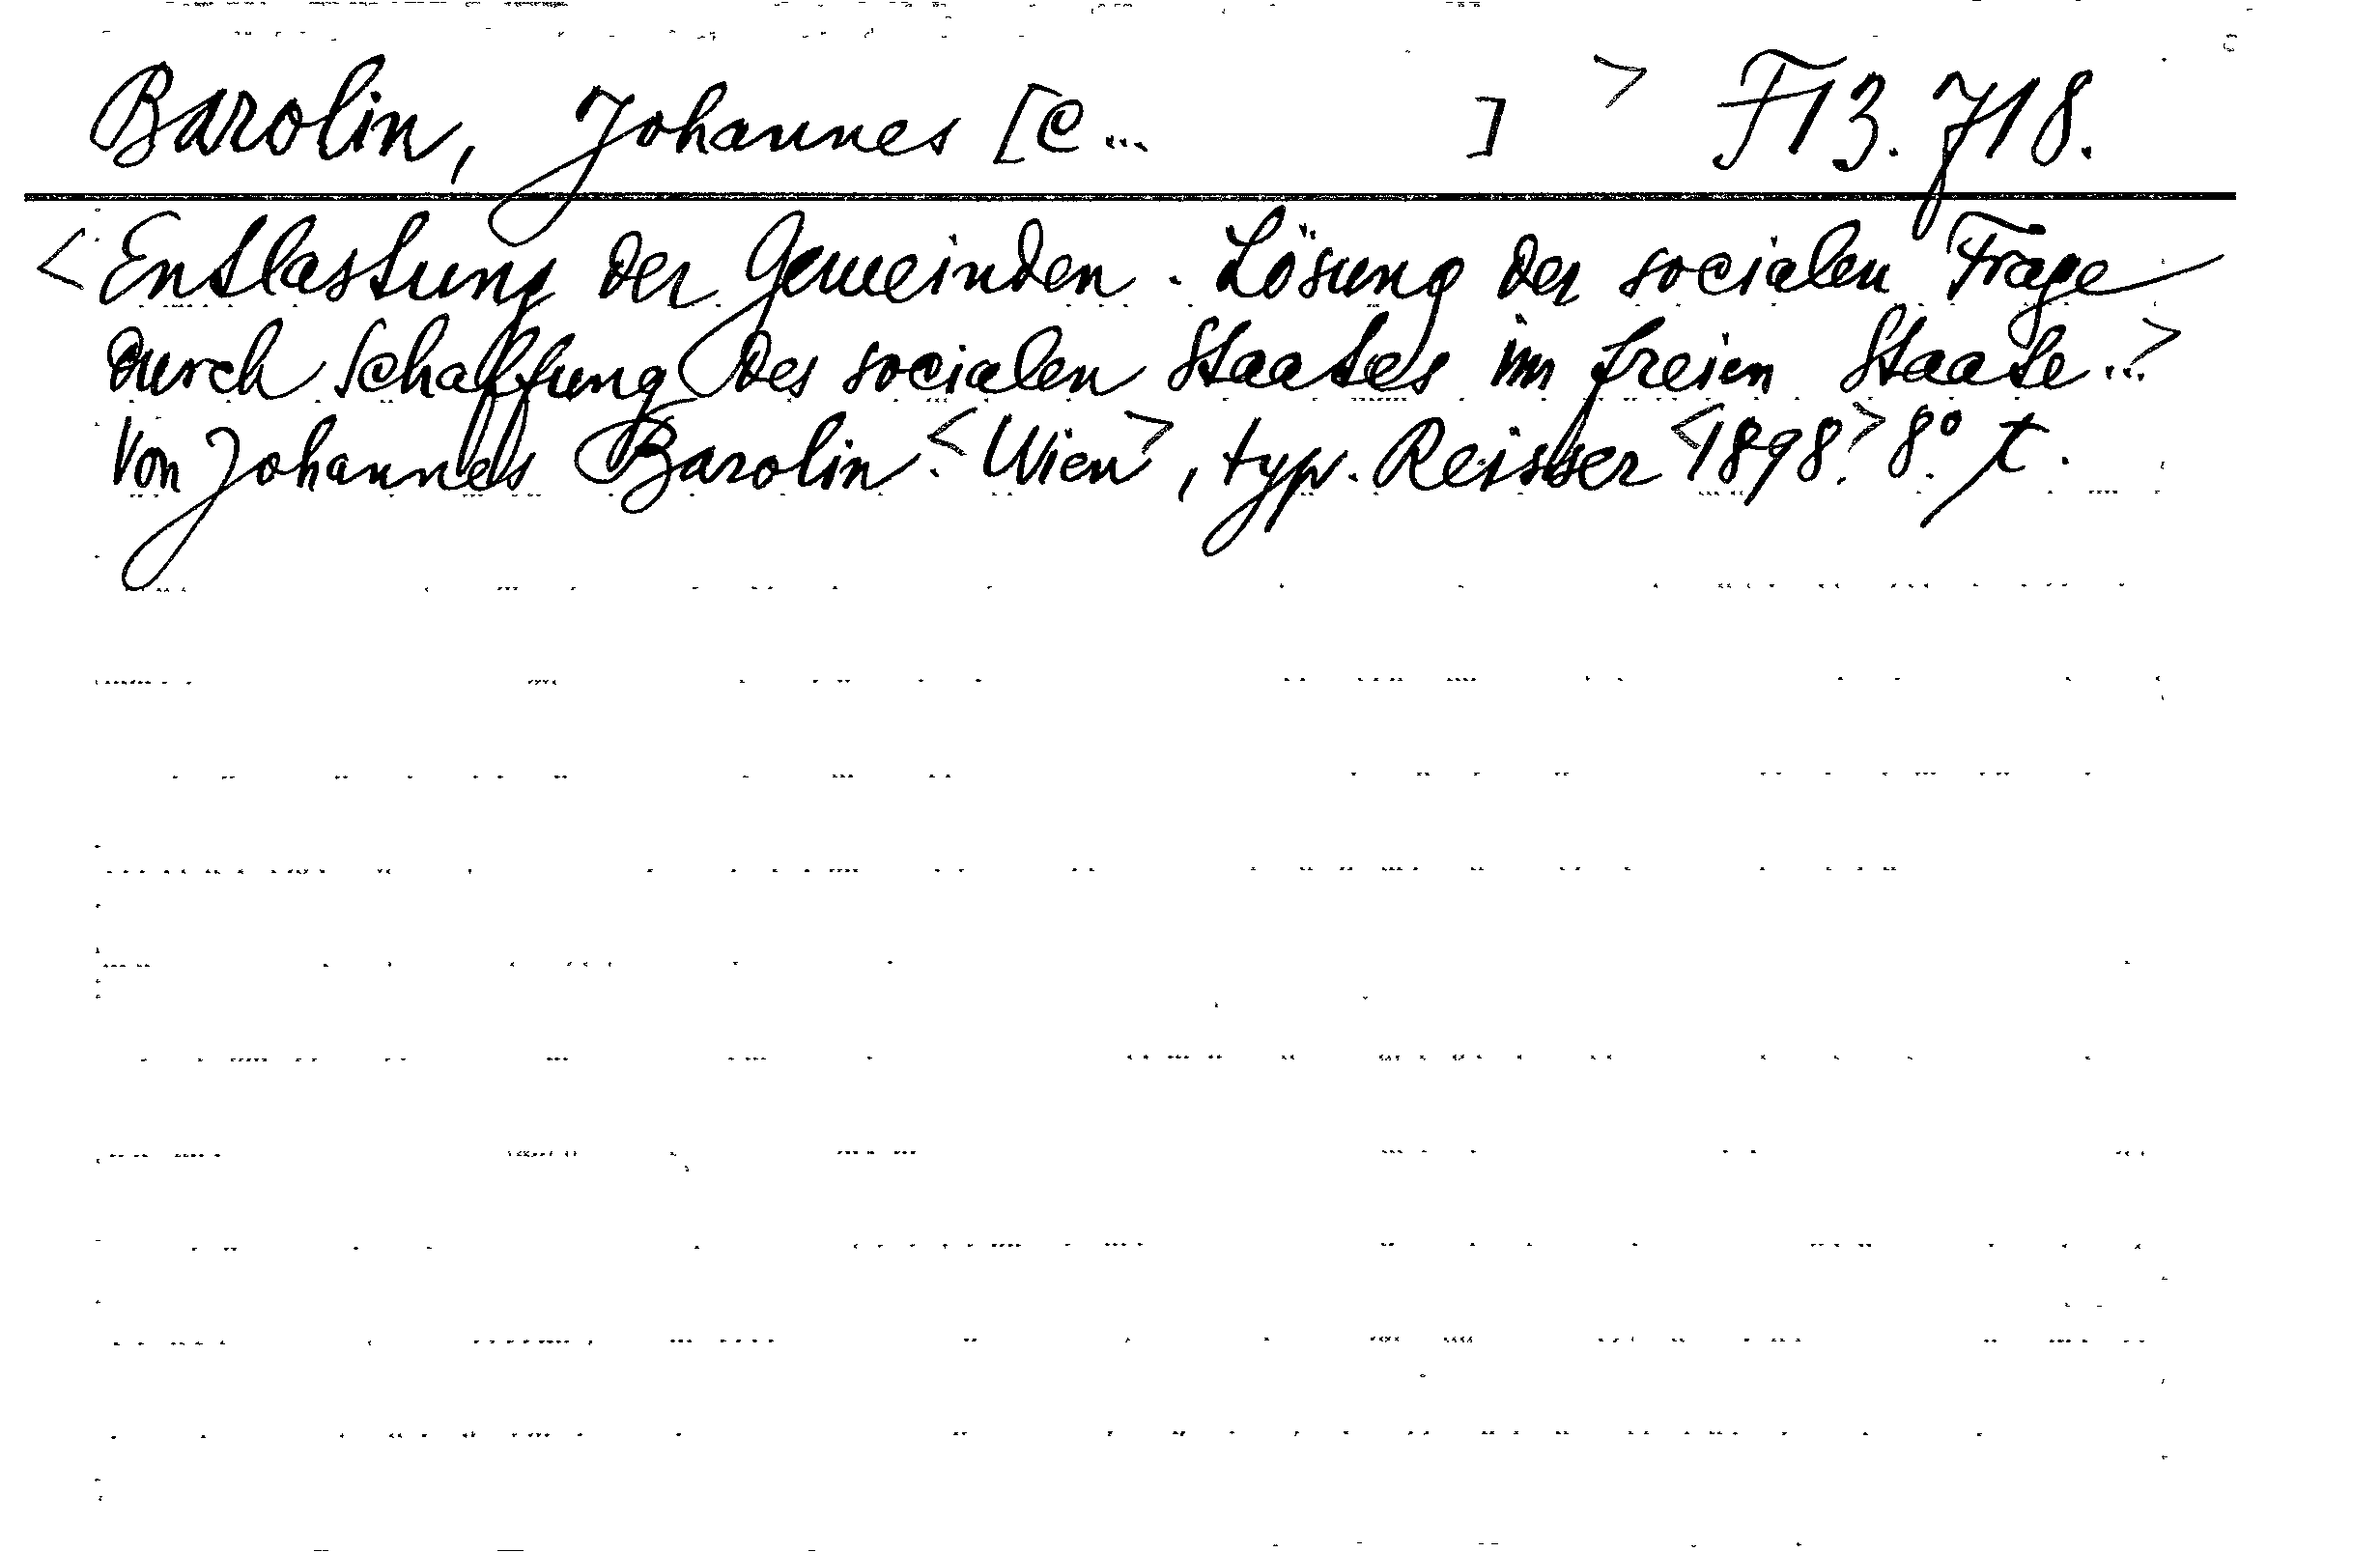 Barolin, Johannes [C... ] > F13.718.
<Entlastung der Gemeinden. Lösung der socialen Frage
durch Schaffung des socialen Staates im freien Staate...>
Von Johannes Barolin. <Wien>, typ. Reisser <1898.> 8.° t.